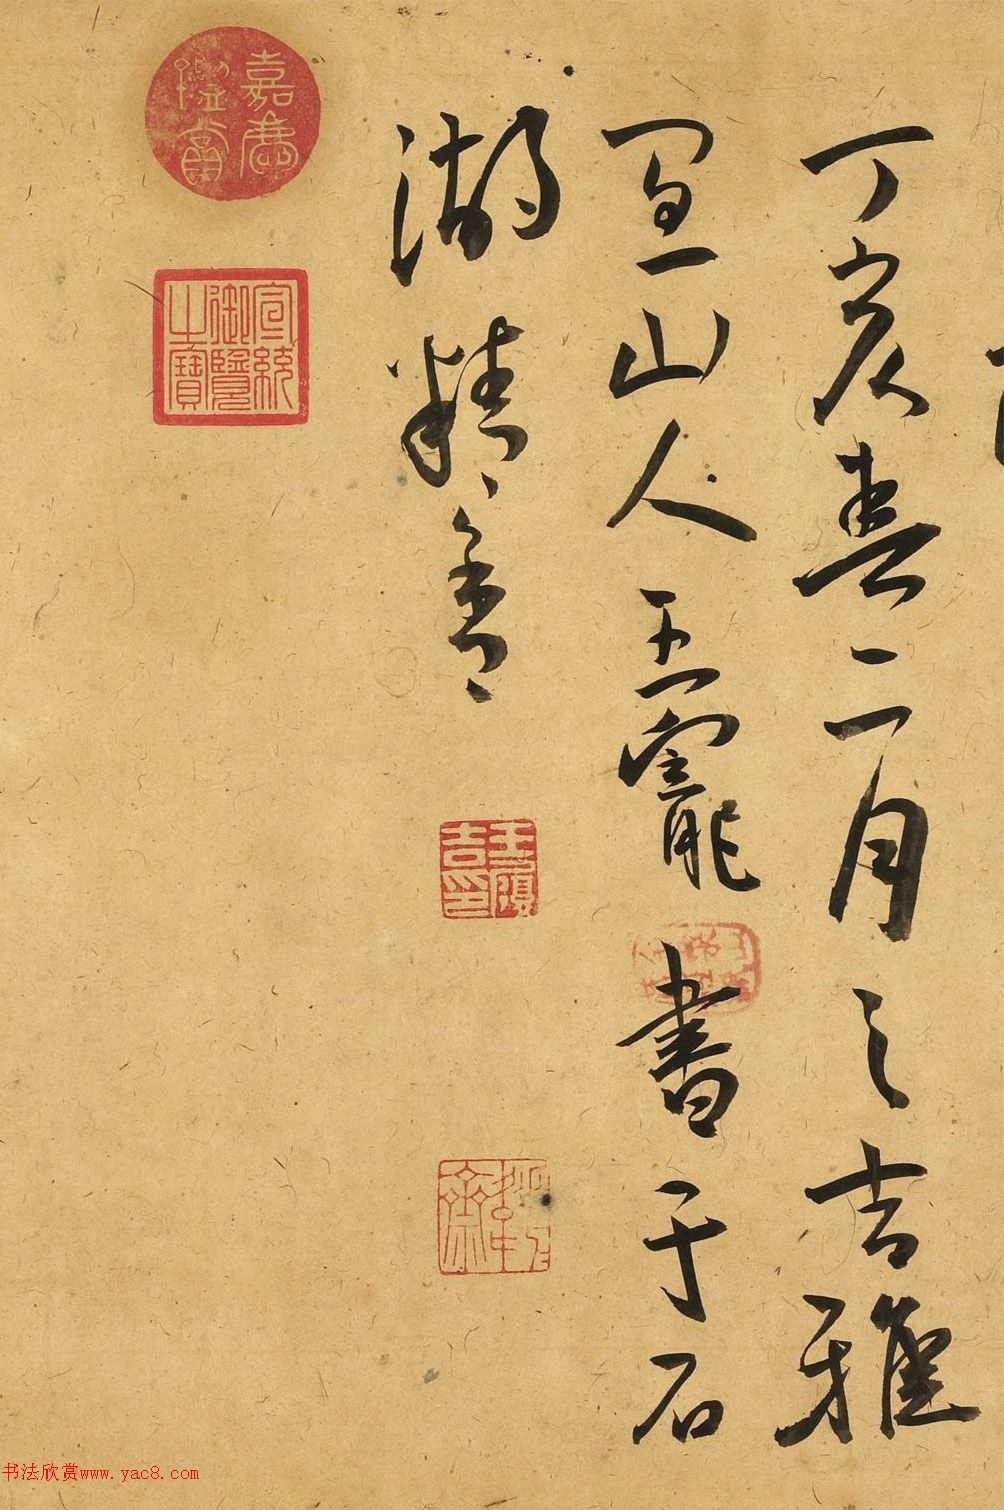 丁亥春二月之吉雅
宜山人王寵書于石
湖精舍
嘉慶鑑賞
宣統御覽之寶
王履吉印
书法欣赏www.yac8.com